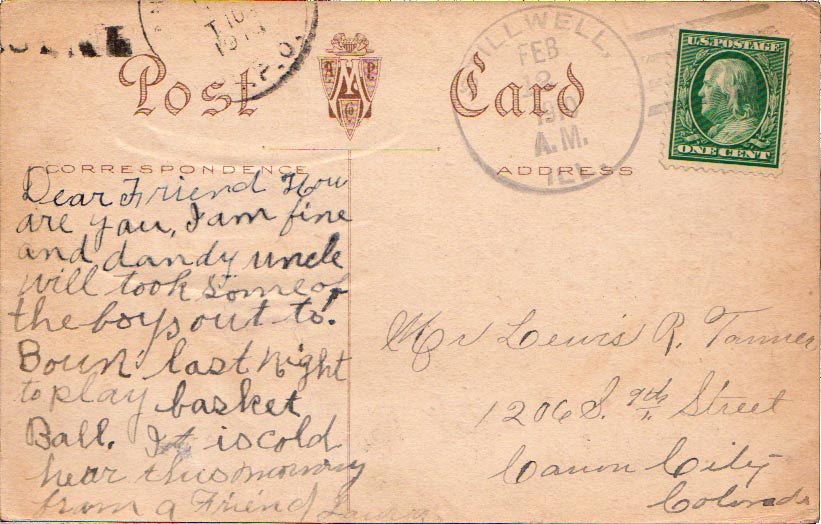 Post Card
AMP
CO
CORRESPONDENCE
ADDRESS
STILLWELL,
FEB
1910
A.M.
ILL.
U.S. POSTAGE
ONE CENT
Dear Friend How
are you, I am fine
and dandy uncle
will took some of
the boys out to
last night
to play basket
Ball. It is cold
hear this morning
from a Friend
Mr Lewis R. Tanner
1206 S. 9th Street
Canon City
Colorado